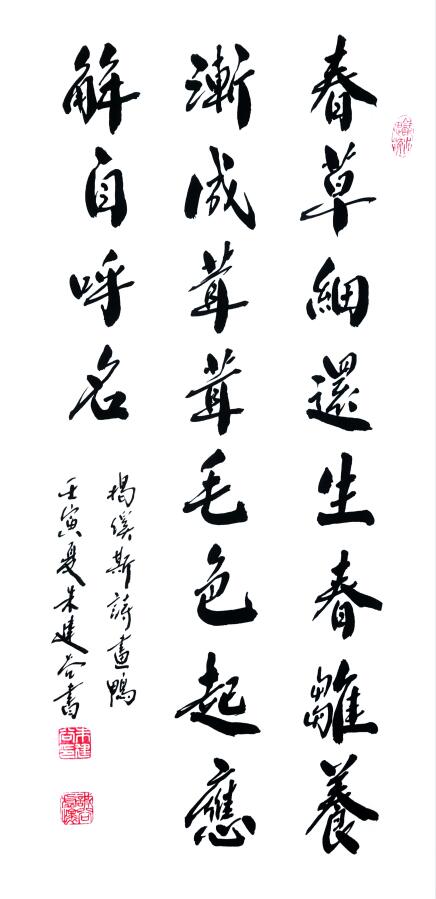 春草細還生春雛養
漸成茸茸毛色起應
解自呼名
揭傒斯詩畫鴨
壬寅夏朱建谷書